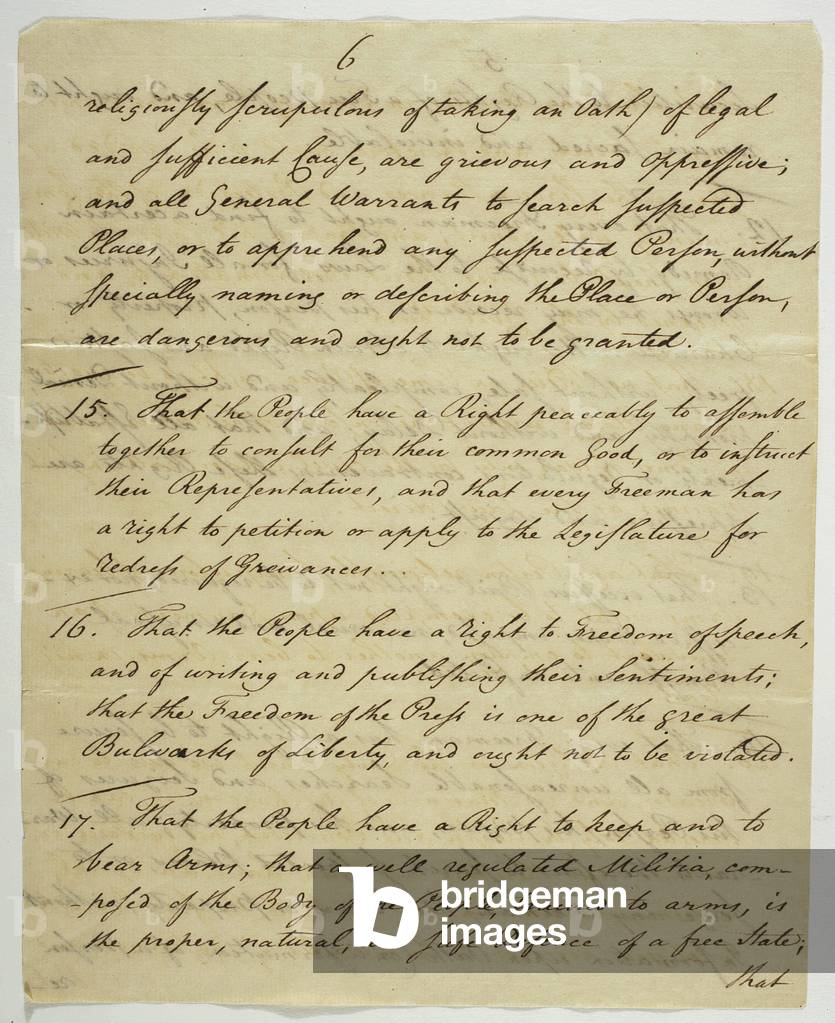 6
religiously scrupulous of taking an Oath) of legal
and sufficient Cause, are grievous and oppressive;
and all General Warrants to search suspected
Places, or to apprehend any suspected Person, without
specially naming or describing the Place or Person,
are dangerous and ought not to be granted.
15. That the People have a Right peaceably to assemble
together to consult for their common Good, or to instruct
their Representatives, and that every Freeman has
a right to petition or apply to the Legislature for
redress of Greivances..
16. That the People have a right to Freedom of speech,
and of writing and publishing their Sentiments;
that the Freedom of the Press is one of the great
Bulwarks of Liberty, and ought not to be violated.
17. That the People have a Right to keep and to
bear Arms; that a well regulated Militia, com-
-posed of the Body of the People, to arms, is
the proper, natural, safe defence of a free State;
that
bridgeman
images